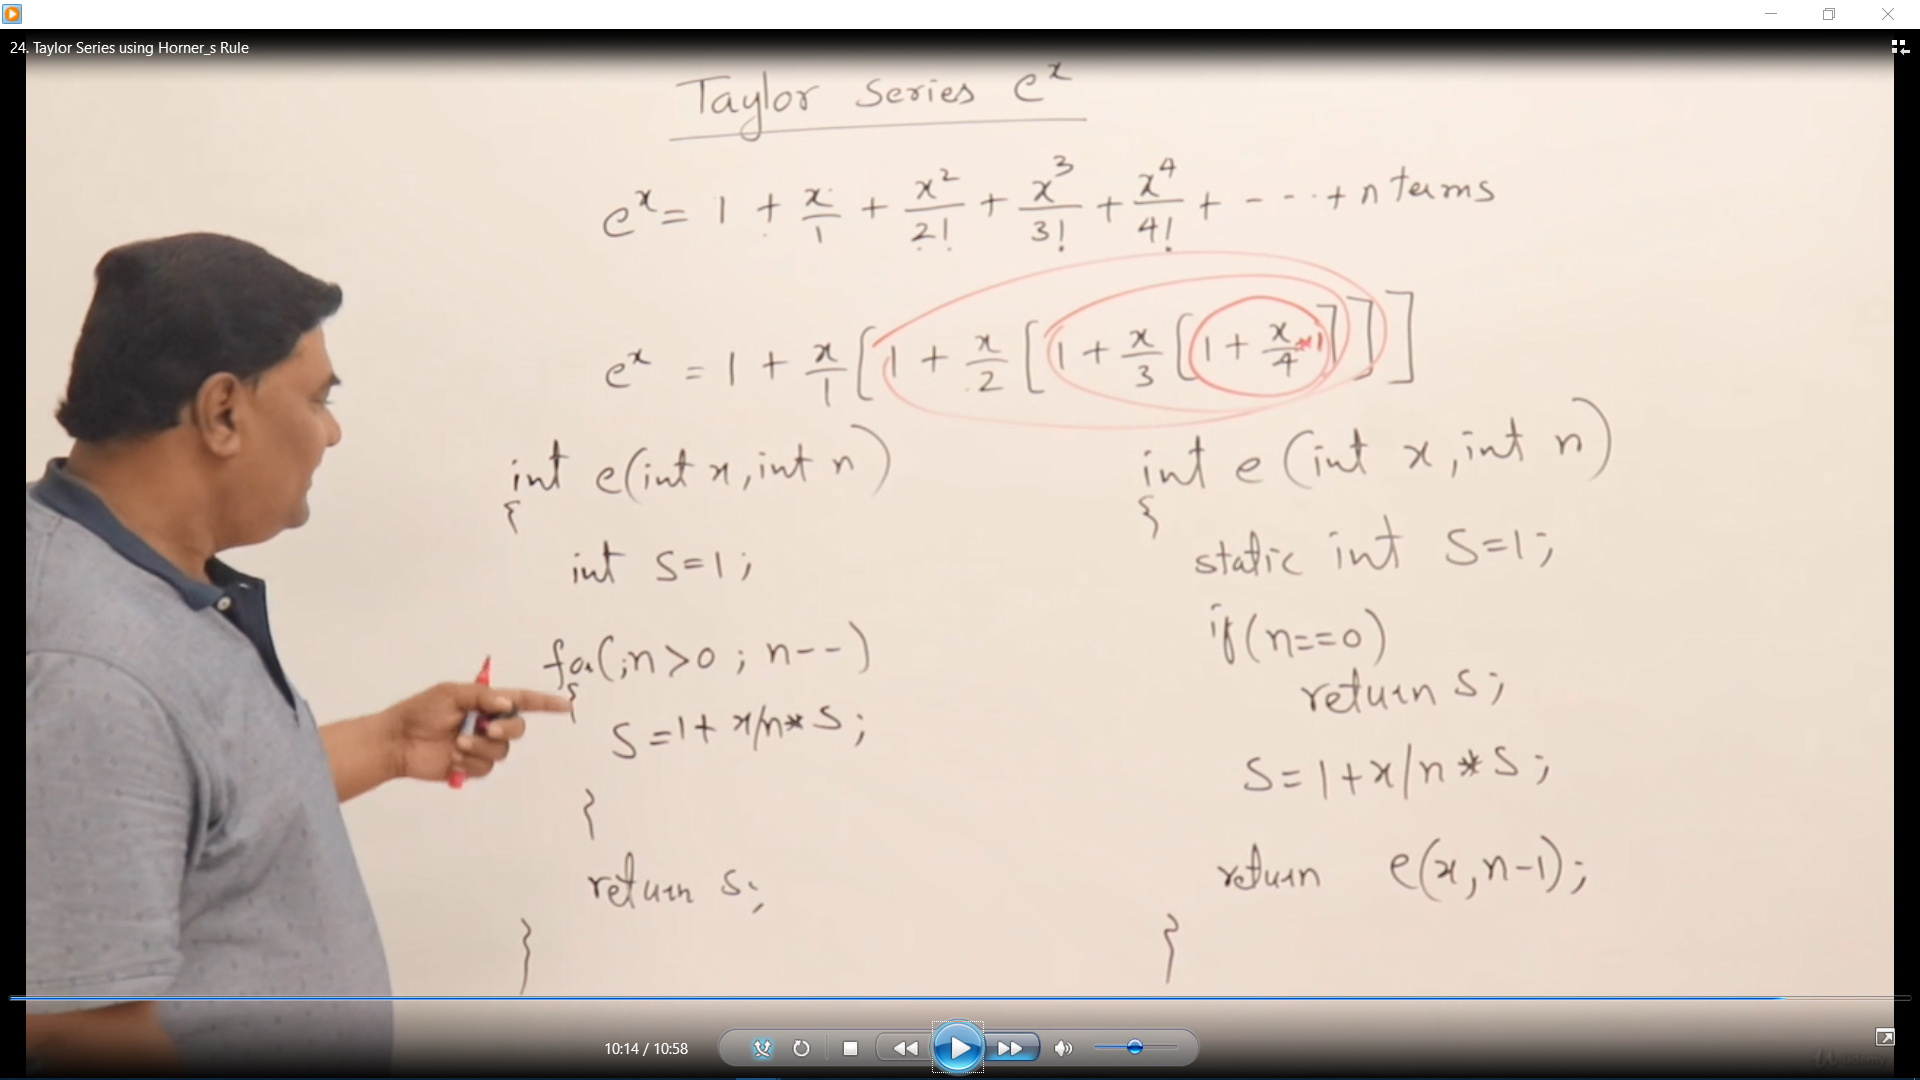 24. Taylor Series using Horner_s Rule
Taylor Series e^x
e^x = 1 + x/1 + x^2/2! + x^3/3! + x^4/4! + - - - - + n terms
e^x = 1 + x/1 [1 + x/2 [1 + x/3 [1 + x/4 *1]]]]
int e(int x, int n)
{
int S=1;
for(;n>0; n--)
{
S=1+x/n*S;
}
return S;
}
int e (int x, int n)
{
static int S=1;
if(n==0)
return S;
S=1+x/n*S;
return e(x,n-1);
}
10:14 / 10:58
Udemy